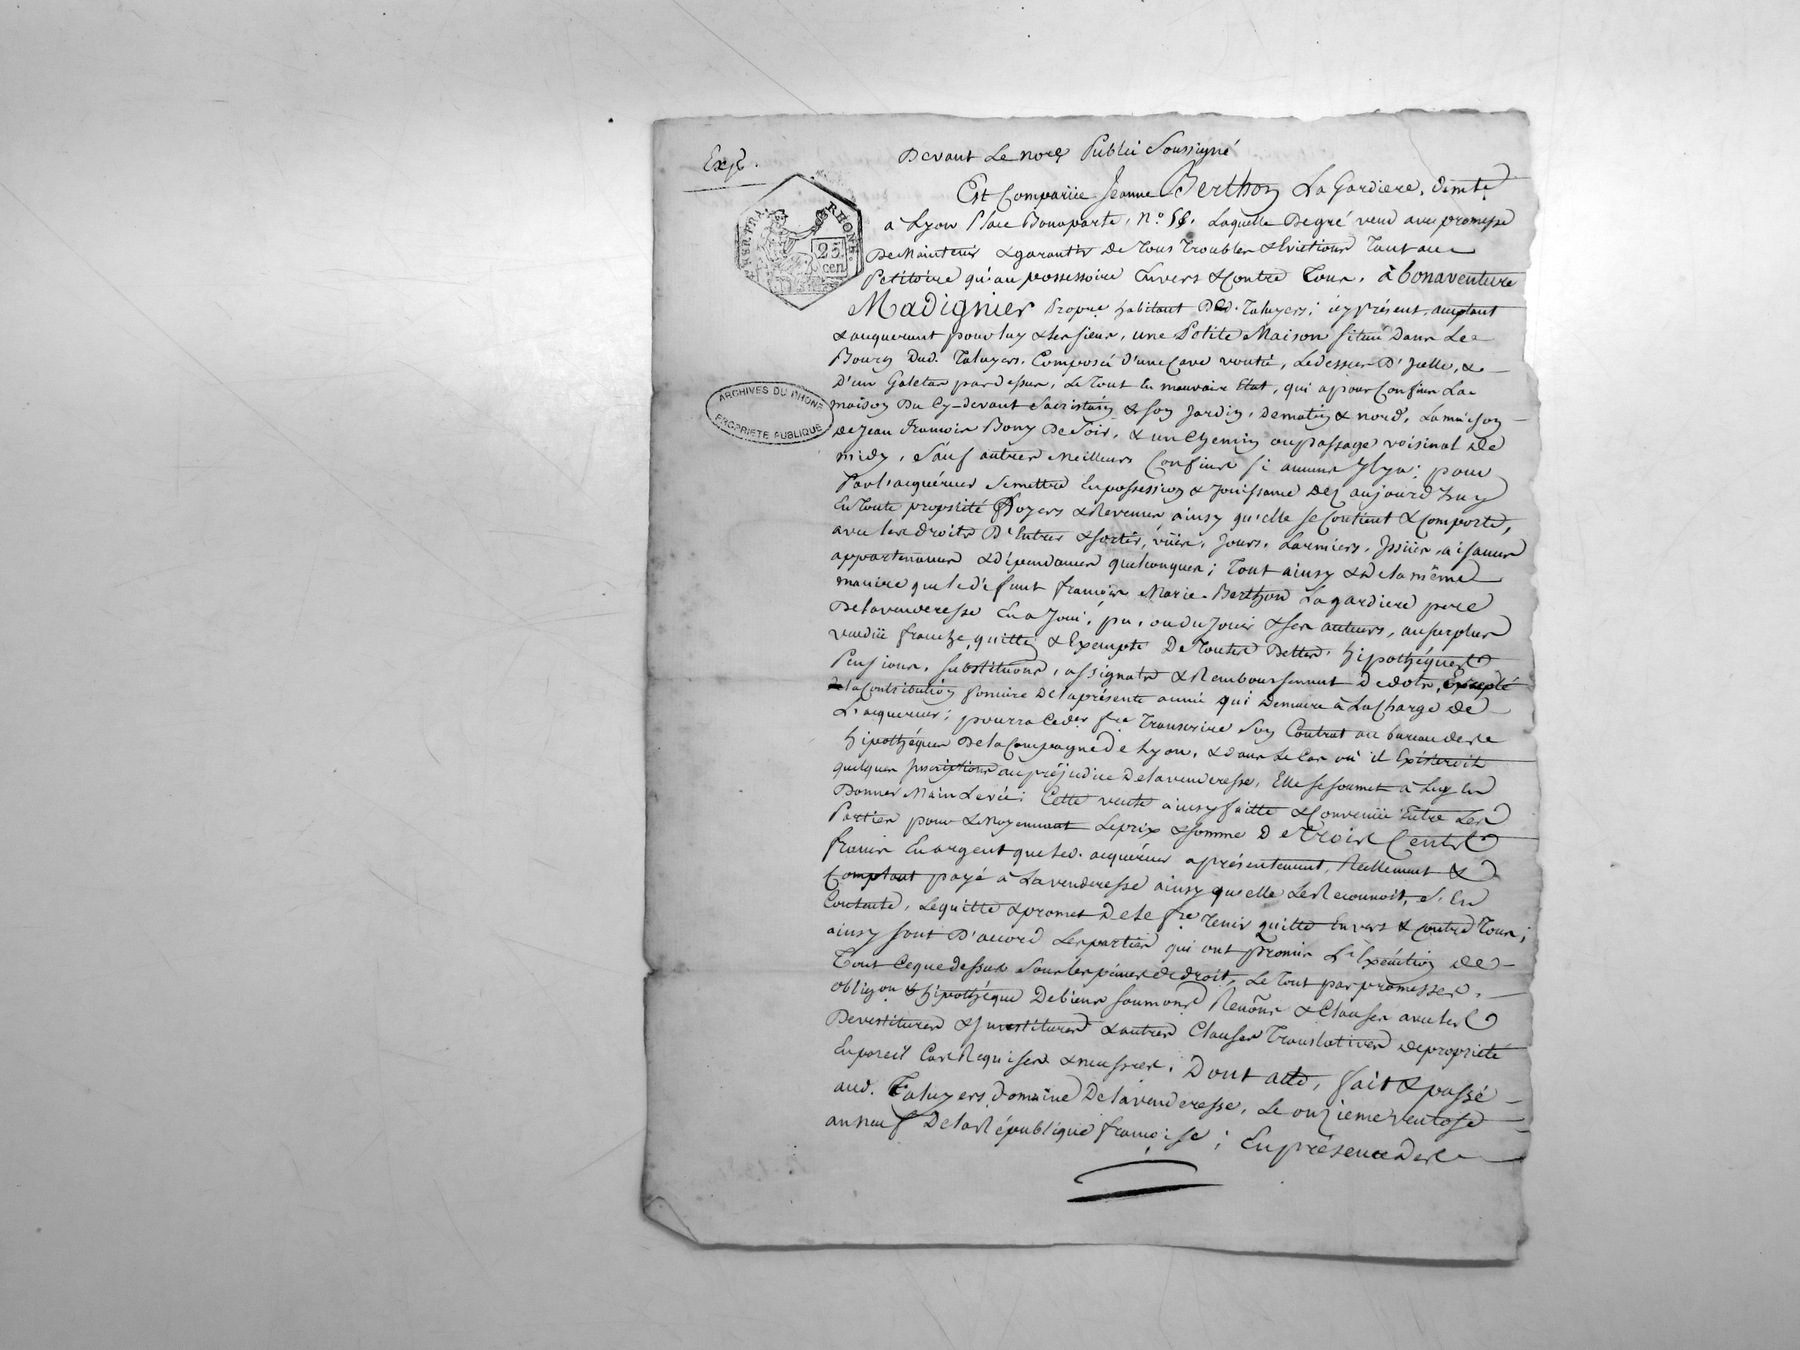 Expé.
Devant Le nore Public Soussigné
Est Compariie Jeanne Berthon La Gardiere, demte
à Lyon Place Bonaparte, N.o 56, Laquelle De gré vend avec promesse
De Maintenir & garantir de Tous Troubles & Evictions Tant au
Petitoire qu'au possessoire Envers & Contre Tous, à bonaventure
Madignier Propre habitant Dud. Taluyers; icy présent, acceptant
& acquerant pour luy & les siens, une Petite Maison située Dans Le
Bourg Dud. Taluyers, Composée d'une Cave voutée, Le dessus D'Icelle, &
D'un Galetas par dessus, Le Tout En mauvais Etat, qui a pour Confins La
maison Du Cy-devant Sacristain & son Jardin, de matin & nord, La maison
de Jean François Bony De Soir, & un Chemin ou passage voisinal De
midy, Sauf autres Meilleurs Confins si aucuns Il y a; pour
Par L'acquéreur Se mettre En possession & Jouissance Dez aujourd'huy
En Toute propriété Loyers & Revenus ainsy qu'elle se Contient & Comporte,
avec les droits D'Entrer & sortir, vües, Jours, Larmiers, Issües, aisances
appartenances & dépendances quelconques; Tout ainsy & de la même
maniere que le défunt François Marie Berthon Lagardiere pere
De la venderesse En a Joui, pu, ou du Jouir & ses auteurs, au surplus
vendüe franche, quitte, & Exempte De Toutes Dettes, hipothéques
Pensions, substitutions, assignats & Remboursement De dots, Excepté
la Contribution fonciere De la présente année qui Demeure à La Charge De
L'acquereur; pourra Ceder fre Transcrire Son Contrat au bureau des
hipothéques De la Campagne De Lyon, & dans Le Cas où il Existeroit
quelques Inscriptions au préjudice De la venderesse, Elle se soumet à Luy En
Donner Main Levée; Cette vente ainsy faitte & Convenüe Entre Les
Parties pour & Moyennant Le prix & somme De Trois Cents
francs En argent que led. acquéreur a présentement, Réellement &
Comptant payé à La venderesse ainsy qu'elle Le Reconnoit, s'En
Contente, Le quitte & promet De Le fre Tenir quitte Envers & Contre Tous;
ainsy sont D'accord Les parties qui ont Promis L'Exécution De
Tout Ce que dessus Sous les peines de droit, Le Tout par promesses,
obligon & hipothéque De biens soumons Renons & Clauses avec les
Devestitures & Investitures & autres Clauses Translatives de propriété
En pareil Cas Requises & necsres. Dont acte, fait & passé
aud. Taluyers, domaine De la venderesse, Le onzieme ventose
an neuf De la République françoise; En présence Des
RHONE
25
cen
ARCHIVES DU RHONE
PROPRIETE PUBLIQUE